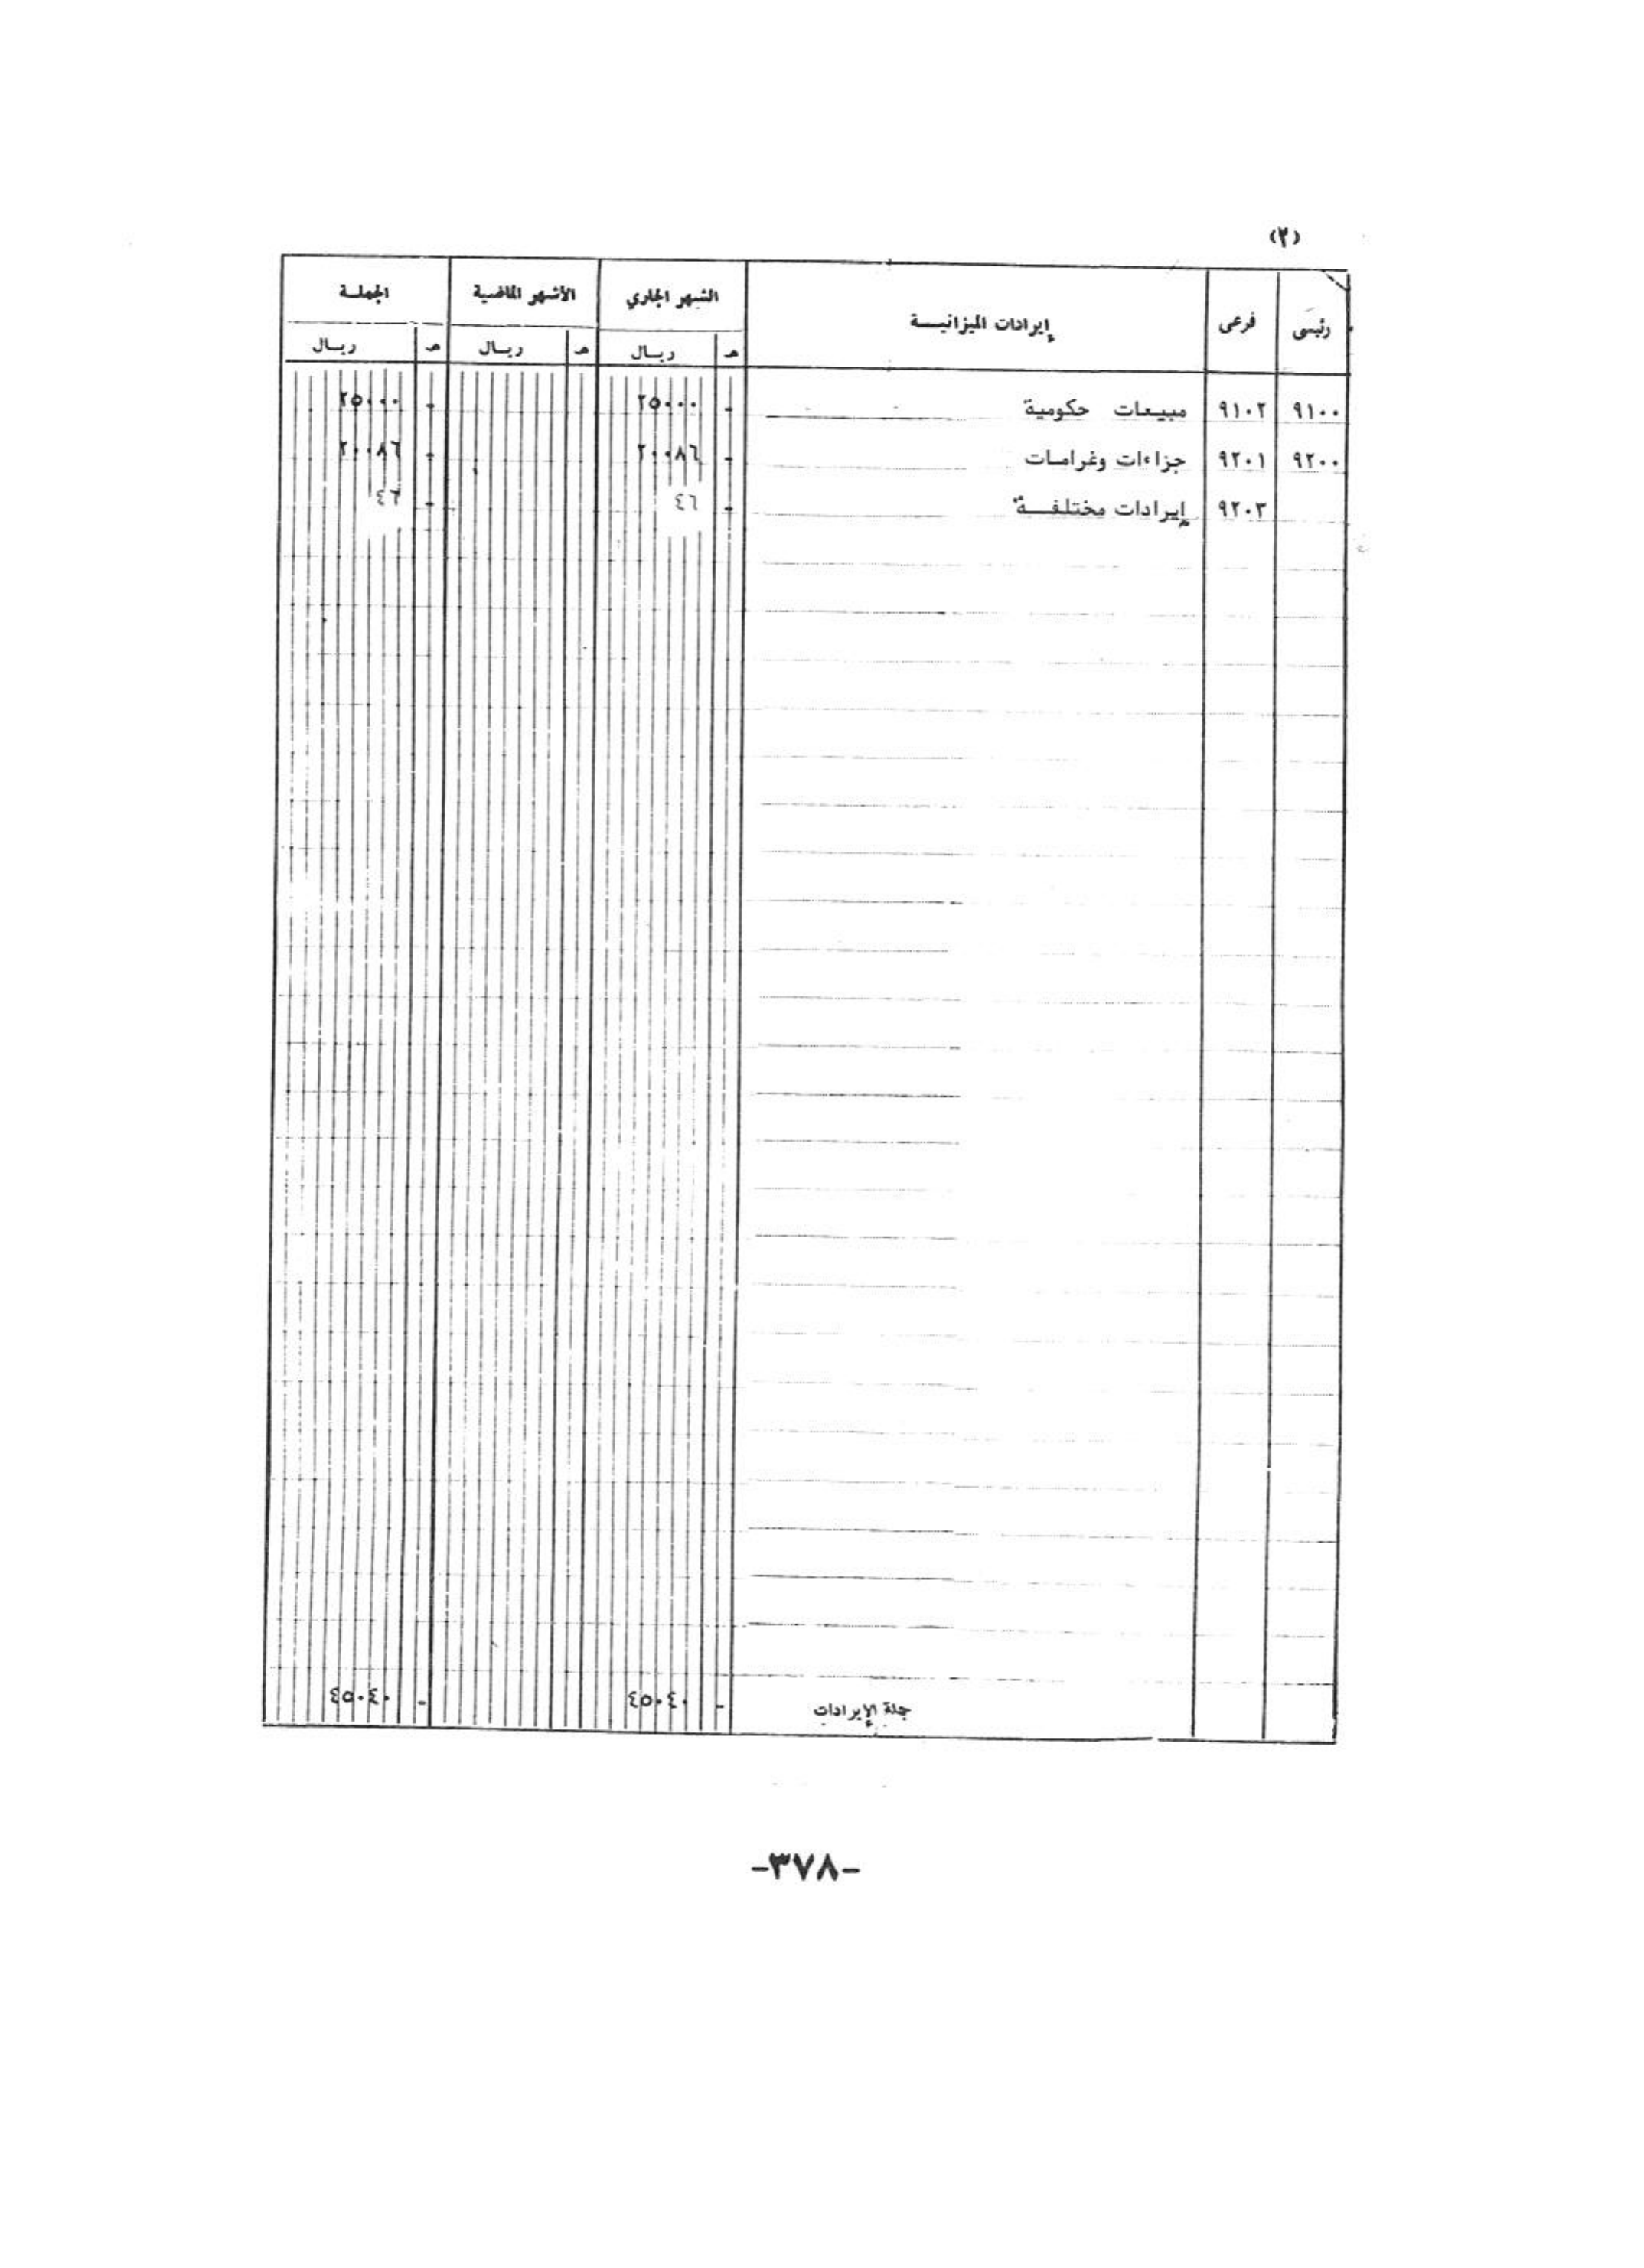 (٢)
رئيسى فرعى إيرادات الميزانيـــة الشهر الجاري الأشهر الماضية الجملـة
هـ ريـال هـ ريـال هـ ريـال
٩١٠٠ ٩١٠٢ مبيعات حكومية - ٢٥٠٠٠ - ٢٥٠٠٠
٩٢٠٠ ٩٢٠١ جزاءات وغرامات - ٢٠٠٨٦ - ٢٠٠٨٦
٩٢٠٣ إيرادات مختلفـــة - ٤٦ - ٤٦
جملة الإيرادات - ٤٥٠٤٠ - ٤٥٠٤٠
-٣٧٨-